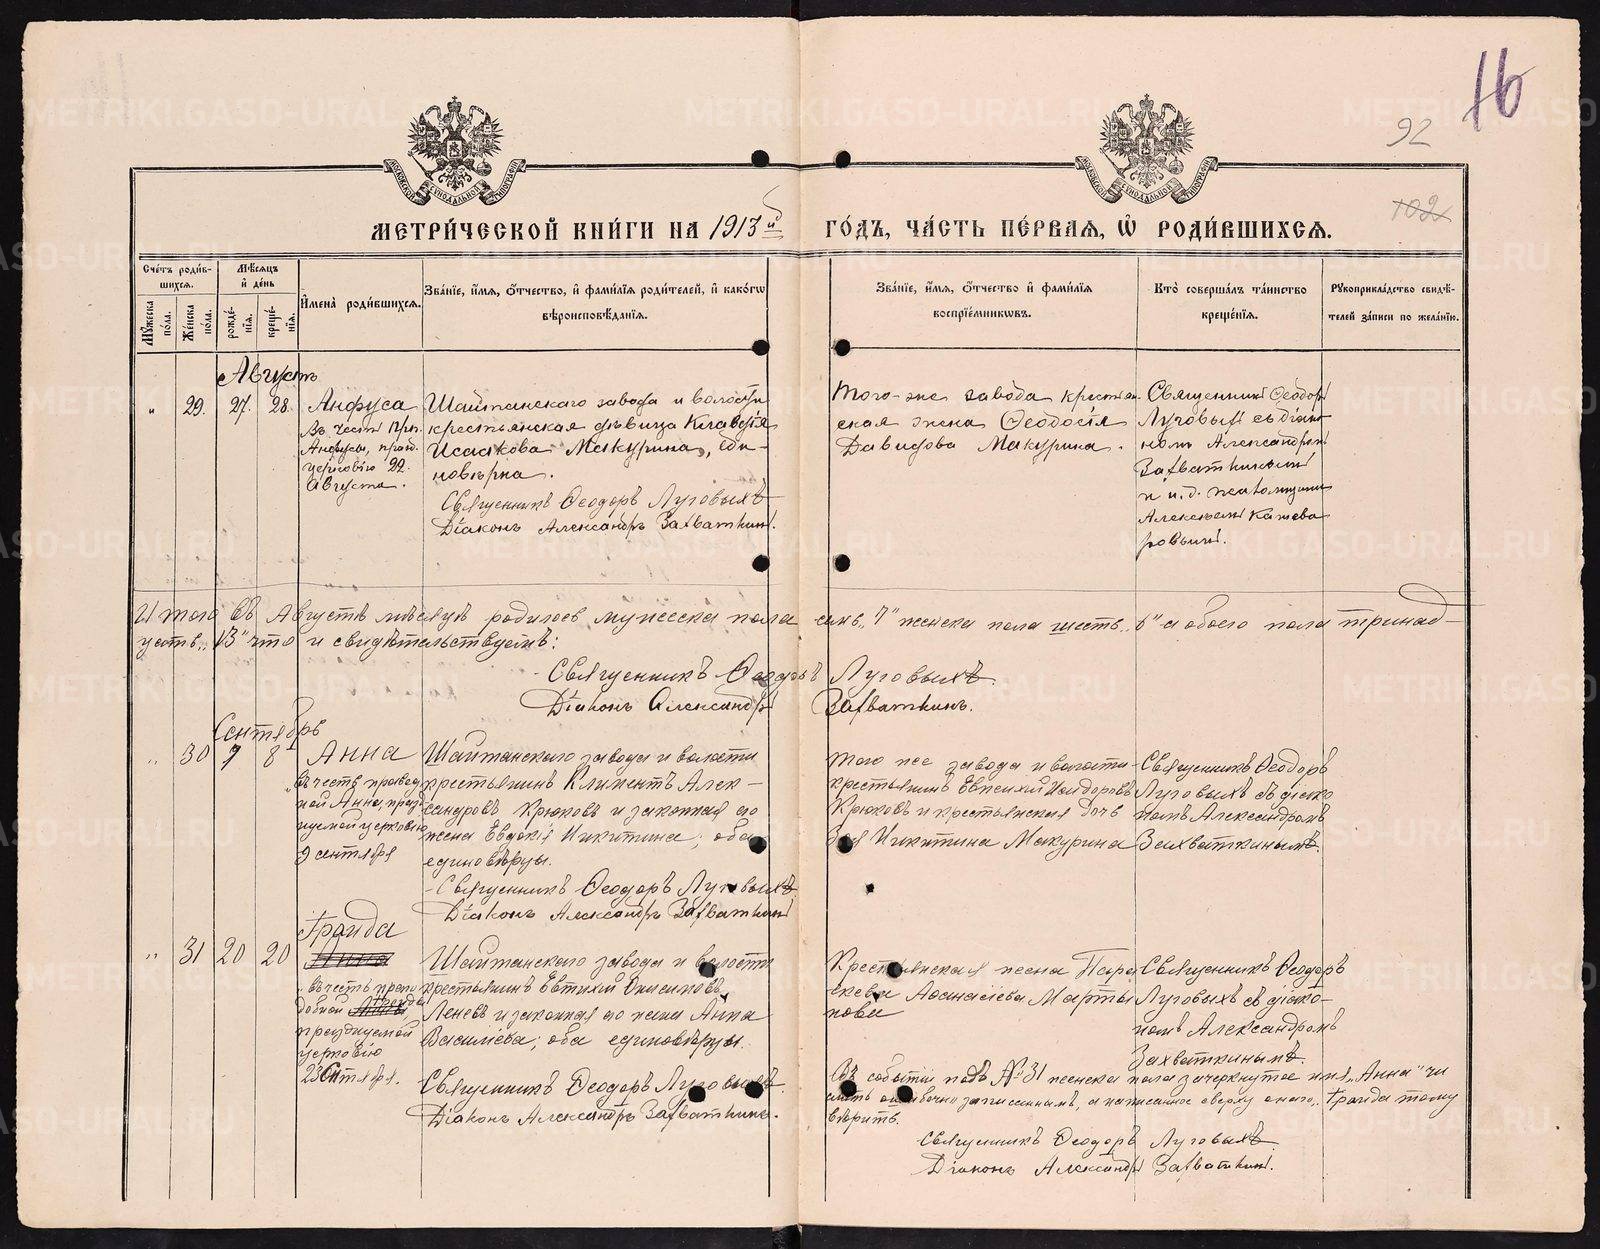 16
92
102
МОСКОВСКОЙ СѴНОДАЛЬНОЙ ТИПОГРАФІИ
МОСКОВСКОЙ СѴНОДАЛЬНОЙ ТИПОГРАФІИ
МЕТРИ́ЧЕСКОЙ КНИ́ГИ НА 1913й ГО́ДЪ, ЧА́СТЬ ПЕ́РВАЯ, Ѽ РОДИ́ВШИХСЯ.
Сче́тъ роди́в-
шихся.
Мѣ́сяцъ
и҆ де́нь
Мꙋ́жеска по́ла.
Же́нска по́ла.
рожде́-
нія.
креще́-
нія.
И҆мена̀ роди́вшихся.
Зва́ніе, и҆́мя, ѻ҆́тчество, и҆ фами́лія роди́телей, и҆ како́гѡ
вѣроисповѣ́данія.
Зва́ніе, и҆́мя, ѻ҆́тчество и҆ фами́лія
воспріе́мникѡвъ.
Кто̀ соверша́лъ та́инство
креще́нія.
Рꙋкоприкла́дство свидѣ́-
телей за́писи по жела́нію.
Августъ
" 29. 27. 28.
Анфуса
Въ честь прп.
Анфусы, празд.
церковію 22.
Августа.
Шайтанскаго завода и волости
крестьянская дѣвица Клавдія
Исаакова Мокурина, еди-
новѣрка.
Священникъ Ѳеодоръ Луговыхъ
Діаконъ Александръ Захваткинъ.
Того-же завода крестьян
ская жена Ѳеодосія
Давидова Макурина.
Священникъ Ѳеодоръ
Луговыхъ съ діако
номъ Александромъ
Захваткинымъ
и и.д. псаломщика
Алексѣемъ Кашева
ровымъ.
Итого въ Августѣ мѣсяцѣ родилось мужеска пола семь „7" женска пола шесть „6" а обоего пола тринад-
цать „13" что и свидѣтельствуемъ:
Священникъ Ѳеодоръ Луговыхъ.
Діаконъ Александръ Захваткинъ.
Сентябрь
" 30 7 8
Анна
въ честь правед
ной Анны, празд
нуемой церковію
9 сентября
Шайтанскаго завода и волости
крестьянинъ Климентъ Алек-
сандровъ Крюковъ и законная его
жена Евдокія Никитина; оба
единовѣрцы.
Священникъ Ѳеодоръ Луговыхъ
Діаконъ Александръ Захваткинъ
Того же завода и волости
крестьянинъ Евпсихій Исидоровъ
Крюковъ и крестьянская дочь
Зоя Никитина Мокурина
Священникъ Ѳеодоръ
Луговыхъ съ діако
номъ Александромъ
Захваткинымъ.
" 31 20 20
Ираида
Анна
въ честь препо
добной Ираиды
празднуемой
церковію
23 Сентября.
Шайтанскаго завода и волости
крестьянинъ Евтихій Онисимовъ
Леневъ и законная его жена Анна
Василіева; оба единовѣрцы.
Священникъ Ѳеодоръ Луговыхъ
Діаконъ Александръ Захваткинъ.
Крестьянская жена Пара
скева Аѳанасіева Марты
нова
Священникъ Ѳеодоръ
Луговыхъ съ діако-
номъ Александромъ
Захваткинымъ.
Въ событіи подъ № 31 женска пола зачеркнутое имя „Анна" чи
тать ошибочно записаннымъ, а написанное сверху онаго „Ираида тому
вѣрить.
Священникъ Ѳеодоръ Луговыхъ
Діаконъ Александръ Захваткинъ.
METRIKI.GASO-URAL.RU